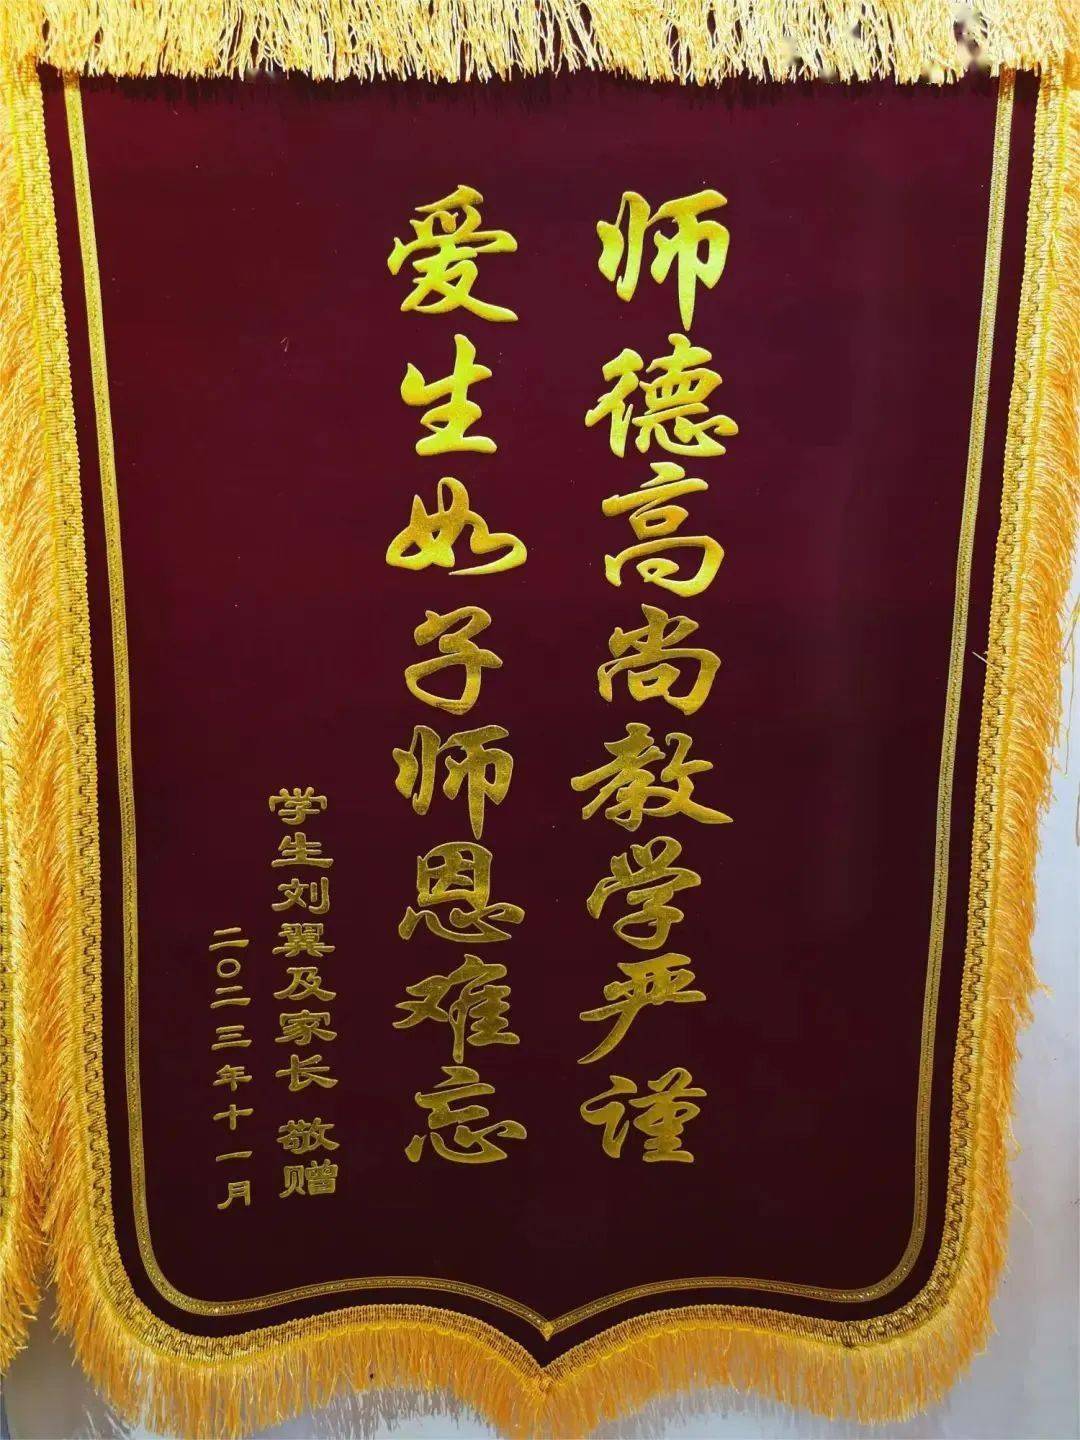 师德高尚教学严谨
爱生如子师恩难忘
学生刘翼及家长 敬赠
二〇二三年十一月